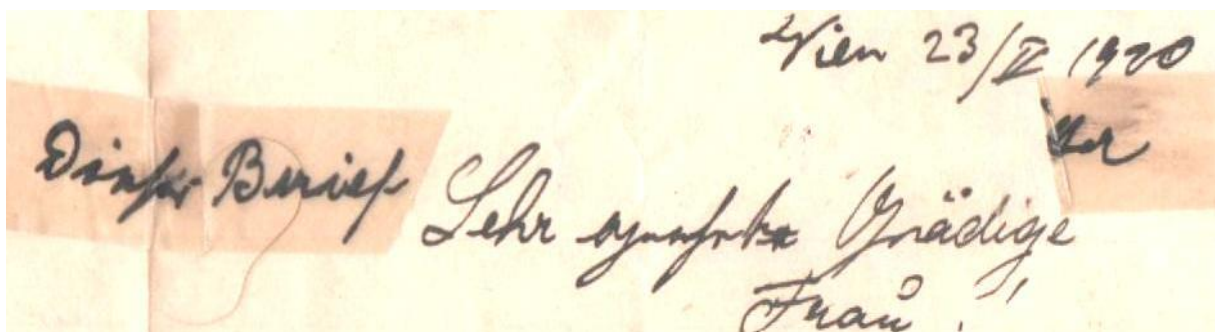 Wien 23/II 1920
Dieser
Sehr geehrte Gnädige
Frau!